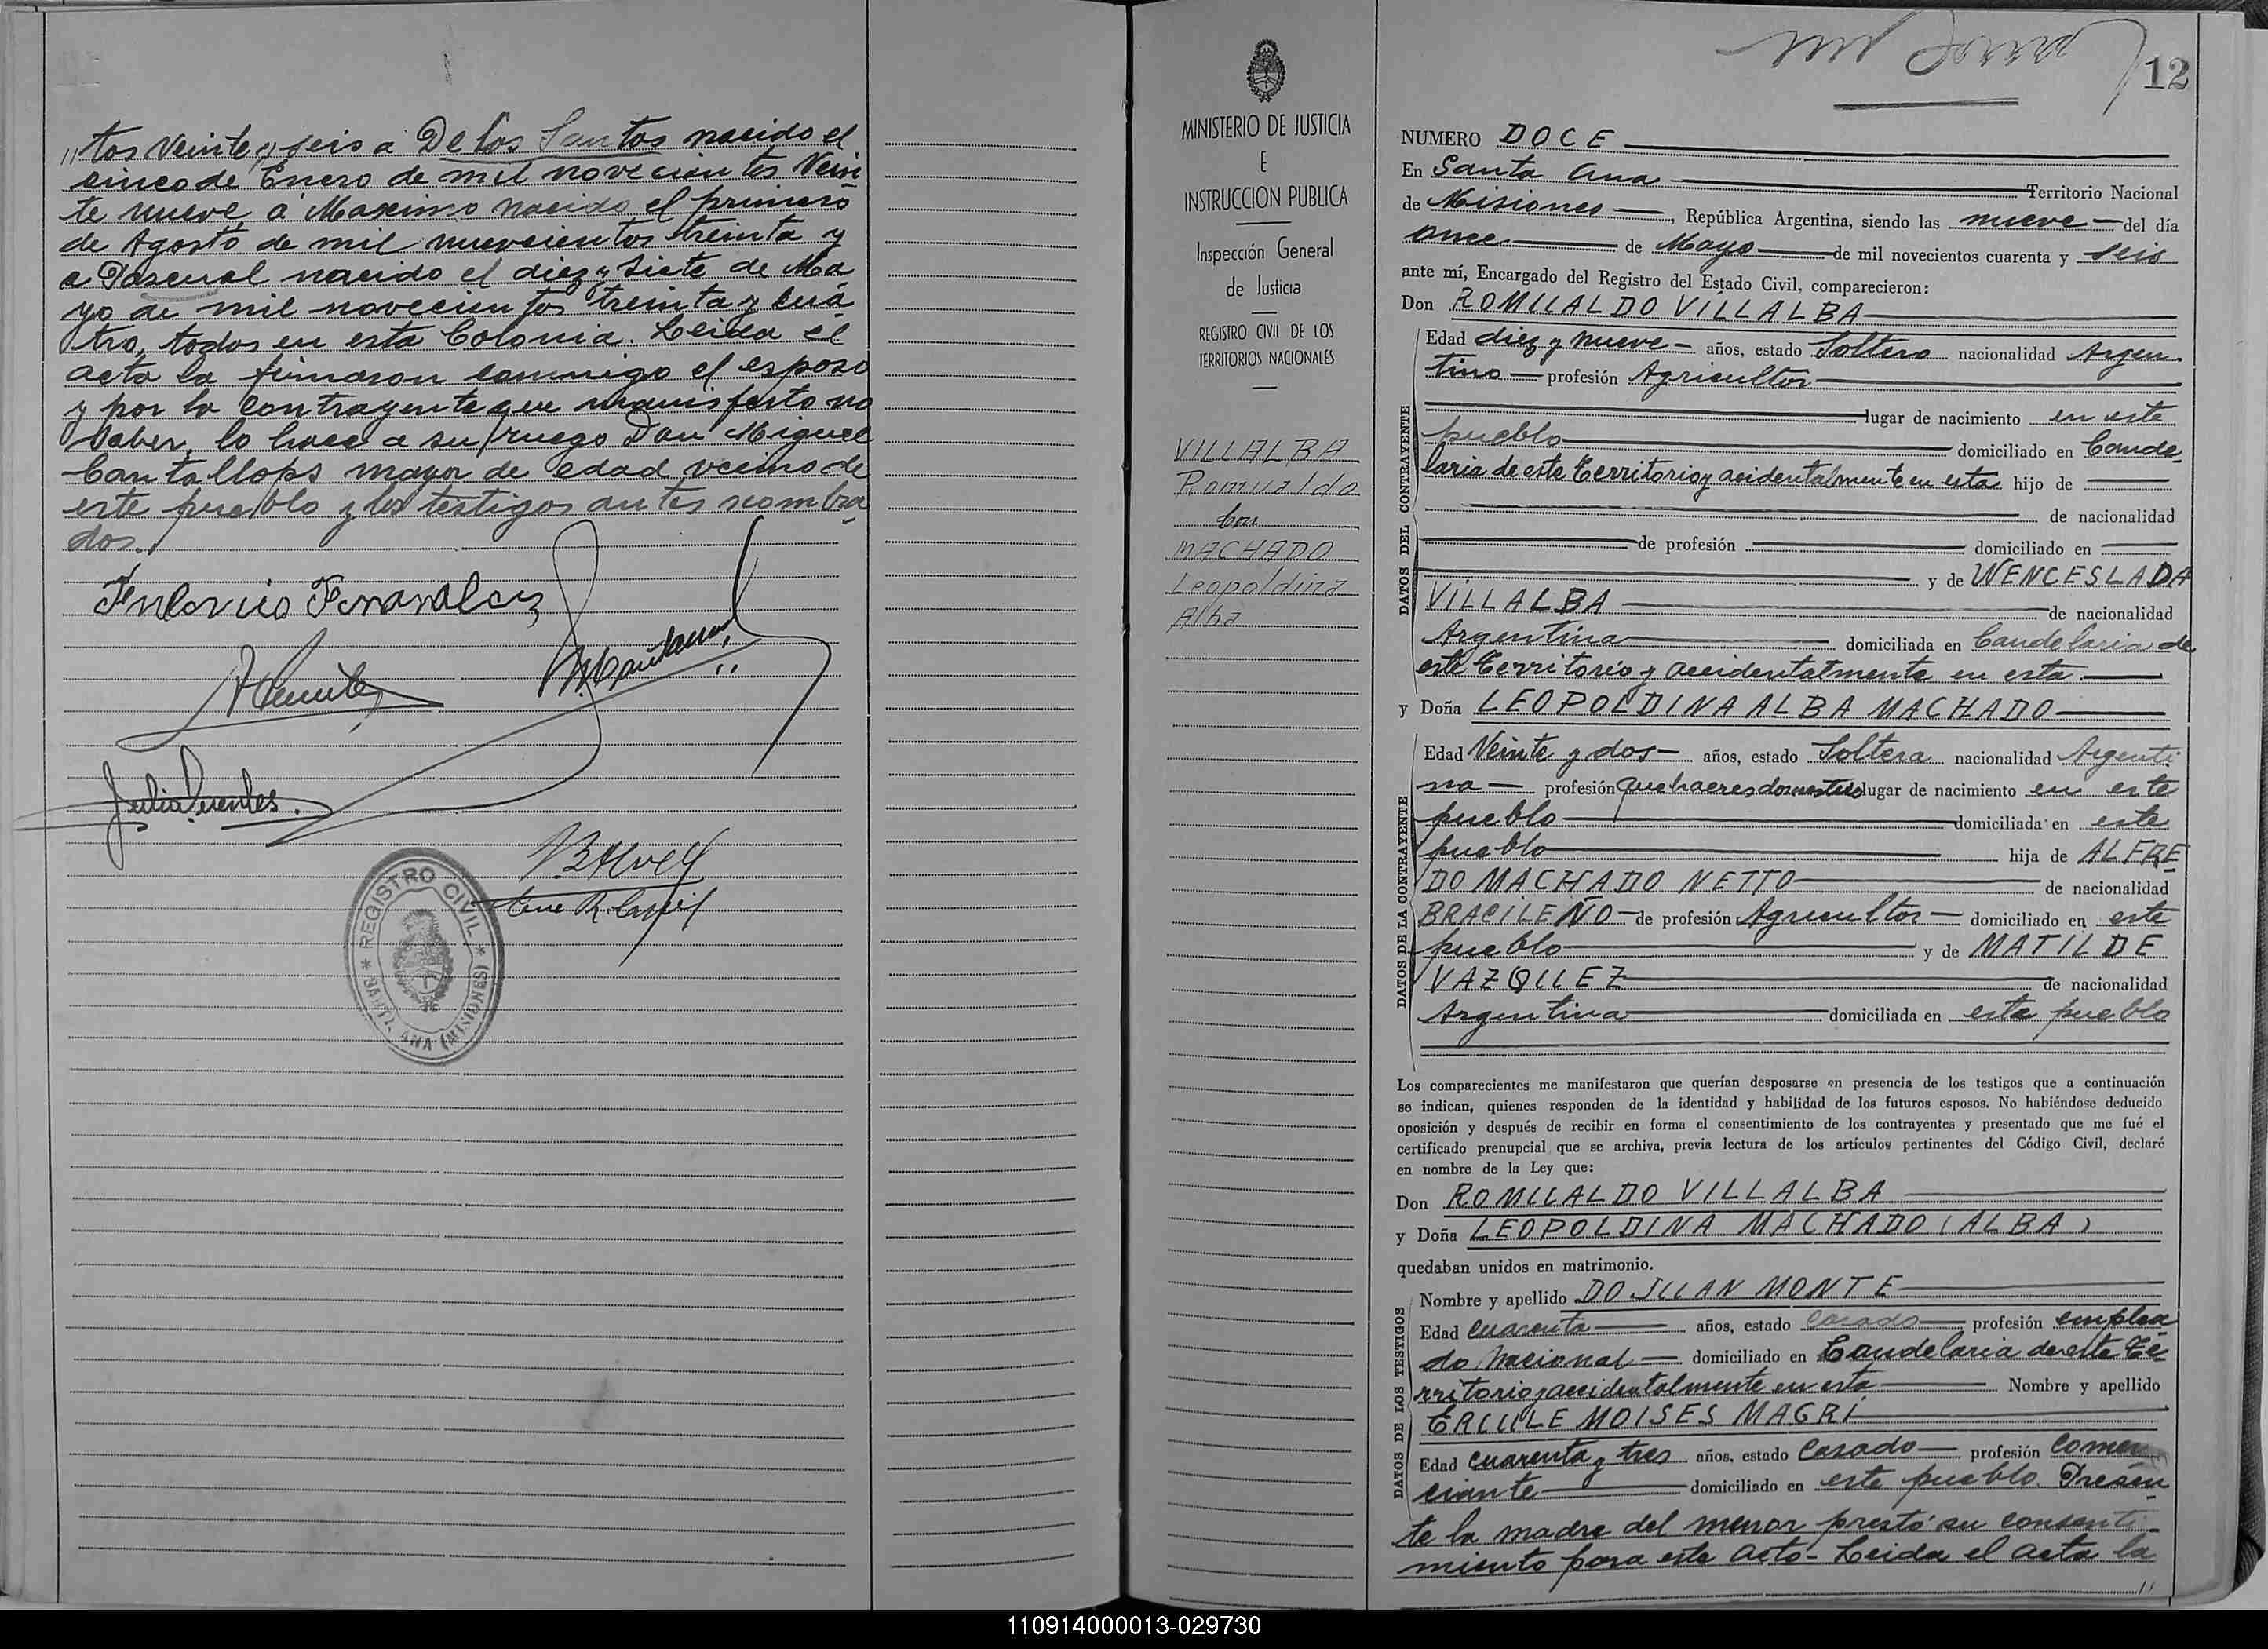 "tos veinte y seis a De los Santos nacido el
cinco de Enero de mil novecientos Vein
te nueve, a Maximo nacido el primero
de Agosto de mil nuevecientos treinta y
a Pascual nacido el diez y siete de Ma
yo de mil novecientos treinta y cua
tro, todos en esta Colonia. Leida el
acta la firmaron conmigo el esposo
y por la contrayente que manifesto no
saber, lo hace a su ruego Don Miguel
Cantallops mayor de edad vecino de
este pueblo y los testigos antes nombra
dos.
Julia Puentes.
REGISTRO CIVIL
SANTA ANA (MISIONES)
MINISTERIO DE JUSTICIA
E
INSTRUCCION PUBLICA
Inspección General
de Justicia
REGISTRO CIVIL DE LOS
TERRITORIOS NACIONALES
VILLALBA
Romualdo
Con
MACHADO
Leopoldina
Alba
12
NUMERO DOCE
En Santa Ana Territorio Nacional
de Misiones, República Argentina, siendo las nueve del día
once de Mayo de mil novecientos cuarenta y seis
ante mí, Encargado del Registro del Estado Civil, comparecieron:
Don ROMUALDO VILLALBA
DATOS DEL CONTRAYENTE
Edad diez y nueve años, estado Soltero nacionalidad Argen
tino profesión Agricultor
lugar de nacimiento en este
pueblo domiciliado en Cande
laria de este Territorio y acidentalmente en esta hijo de
de nacionalidad
de profesión domiciliado en
y de WENCESLADA
VILLALBA de nacionalidad
Argentina domiciliada en Candelaria de
este Territorio y accidentalmente en esta
y Doña LEOPOLDINA ALBA MACHADO
DATOS DE LA CONTRAYENTE
Edad Veinte y dos años, estado Soltera nacionalidad Argenti
na profesión quehaceres domesticos lugar de nacimiento en este
pueblo domiciliada en este
pueblo hija de ALFRE
DO MACHADO NETTO de nacionalidad
BRACILEÑO de profesión Agricultor domiciliado en este
pueblo y de MATILDE
VAZQUEZ de nacionalidad
Argentina domiciliada en este pueblo
Los comparecientes me manifestaron que querían desposarse en presencia de los testigos que a continuación
se indican, quienes responden de la identidad y habilidad de los futuros esposos. No habiéndose deducido
oposición y después de recibir en forma el consentimiento de los contrayentes y presentado que me fué el
certificado prenupcial que se archiva, previa lectura de los artículos pertinentes del Código Civil, declaré
en nombre de la Ley que:
Don ROMUALDO VILLALBA
y Doña LEOPOLDINA MACHADO (ALBA)
quedaban unidos en matrimonio.
DATOS DE LOS TESTIGOS
Nombre y apellido DO JUAN MONTE
Edad cuarenta años, estado casado profesión emplea
do Nacional domiciliado en Candelaria de este Te
rritorio y accidentalmente en esta Nombre y apellido
ERCULE MOISES MAGRI
Edad cuarenta y tres años, estado Casado profesión Comer
ciante domiciliado en este pueblo. Presen
te la madre del menor prestó su consenti
miento para este acto- Leida el acta la
"
110914000013-029730